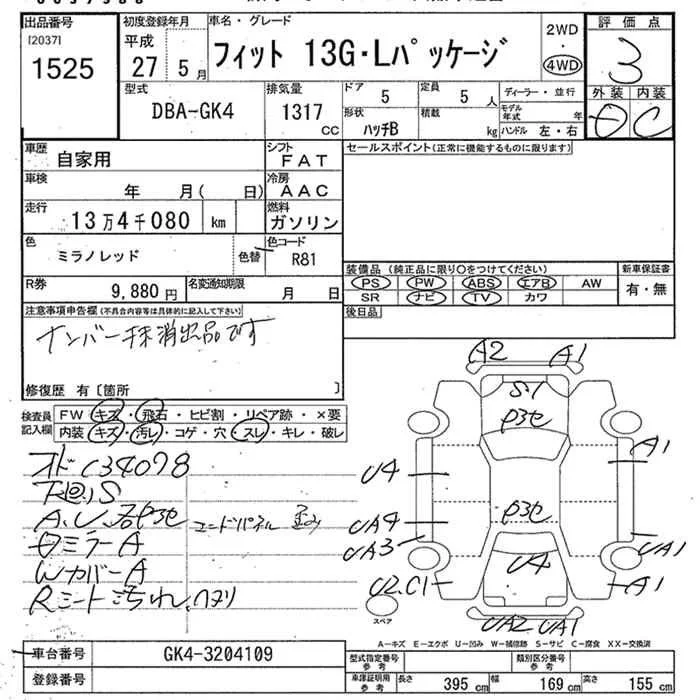 出品番号 初度登録年月 車名・グレード 2WD 評価点
[2037] 平成
1525 27 5月 フィット 13G・Lパッケージ ・ 4WD 3
型式 排気量 ドア 5 定員 5人 ディーラー・並行 外装 内装
DBA-GK4 1317 CC 形状 ハッチB 積載 kg モデル年式 年 ハンドル 左・右 C
車歴 自家用 シフト FAT セールスポイント(正常に機能するものに限ります)
車検 年 月( 日) 冷房 AAC
走行 13万4千080 km 燃料 ガソリン
色 ミラノレッド 色替 色コード R81
装備品(純正品に限り〇をつけてください) 新車保証書
R券 9,880円 名変通知期限 月 日 PS PW ABS エアB AW 有・無
SR ナビ TV カワ
注意事項申告欄(不具合内容等は具体的に記入して下さい) 後日品
ナンバー抹消出品です
修復歴 有〔箇所 〕
検査員記入欄 FW キズ・飛石・ヒビ割・リペア跡・×要
内装 キズ・汚レ・コゲ・穴・スレ・キレ・破レ
A2 A1
S1
P3セ
A1
U4
P3セ
UA4
UA3 UA1
U4
U2.C1 A1
スペア
UA2 UA1
下廻リS
ミラーA
WカバーA
A-キズ E-エクボ U-凹み W-補修跡 S-サビ C-腐食 XX-交換済
車台番号 GK4-3204109 型式指定番号 参考 類別区分番号 参考
登録番号 車庫証明用 参考 長さ 395cm 幅 169cm 高さ 155cm